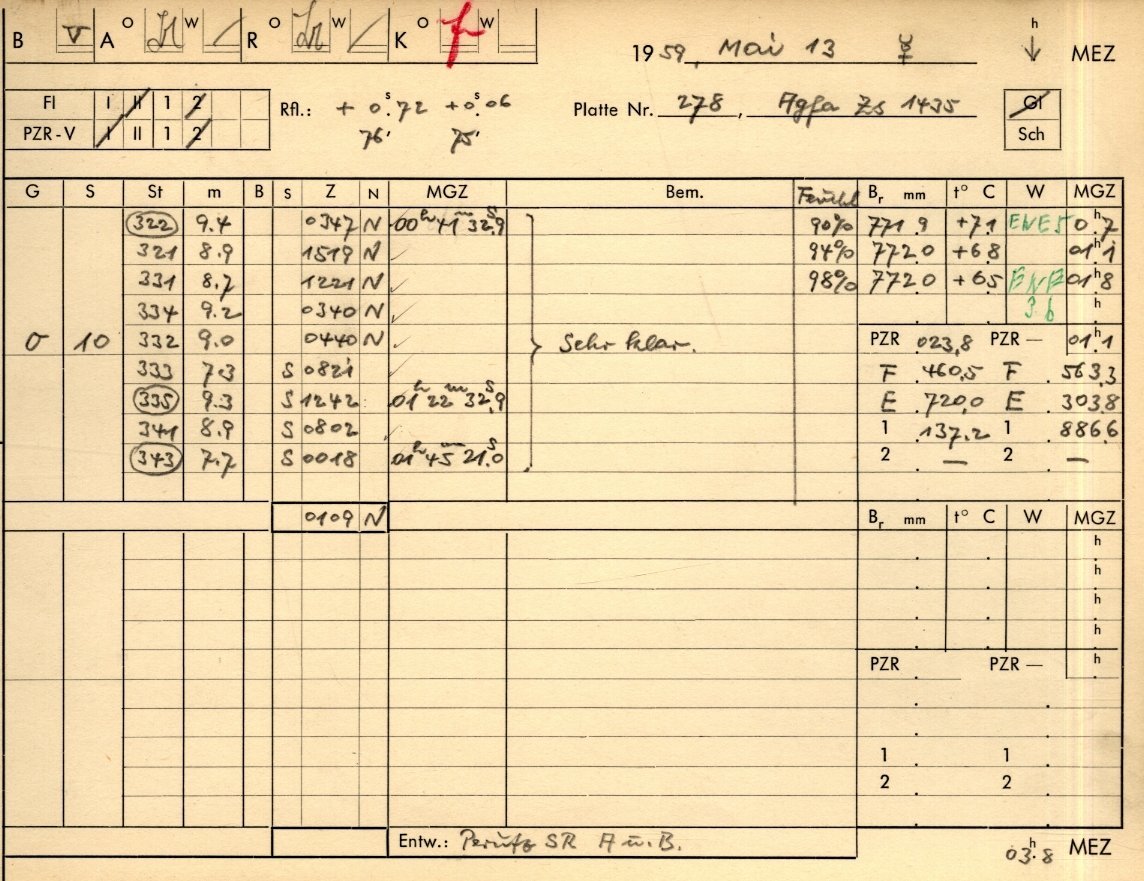 B v A O W R O W K O f W
19 59, Mai 13 ☿ h ↓ MEZ
Fl I II 1 2
PZR-V I II 1 2
Rfl.: + 0ˢ.72 +0ˢ.06
76' 75'
Platte Nr. 278, Agfa Zs 1435
Gl
Sch
G S St m B S Z N MGZ Bem. Br mm t° C W MGZ
322 9.4 0347 N 00ʰ 41ᵐ 32ˢ.9 90% 771.9 +7.1 ENE 5 0ʰ.7
321 8.9 1519 N 94% 772.0 +6.8 01ʰ.1
331 8.7 1221 N 98% 772.0 +6.5 01ʰ.8
334 9.2 0340 N h
σ 10 332 9.0 0440 N Sehr klar. PZR 023,8 PZR — 01ʰ.1
333 7.3 S 0821 F .460,5 F . 563,3
335 9.3 S 1242 01ʰ 22ᵐ 32ˢ.9 E .720,0 E . 303,8
341 8.9 S 0802 1 .137,2 1 . 886,6
343 7.7 S 0018 01ʰ 45ᵐ 21ˢ.0 2 . — 2 . —
0109 N Br mm t° C W MGZ
h
h
h
h
PZR PZR — h
1 1
2 2
Entw.: Perutz SR A u. B.
03ʰ.8 MEZ